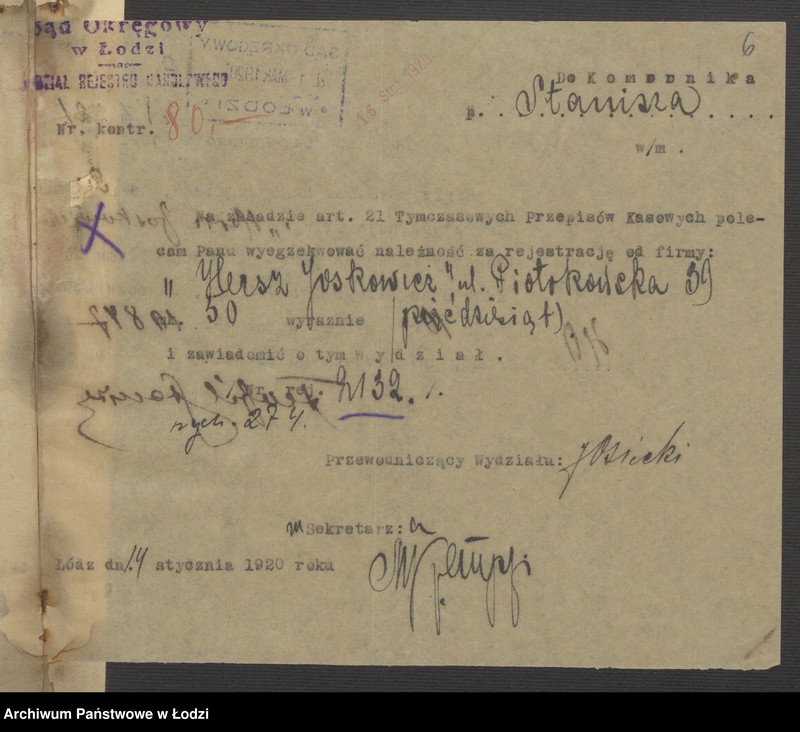 Sąd Okręgowy
w Łodzi
DZIAŁ REJESTRU HANDLOWEGO
6
16 STY. 1920
Do Komornika
p. Stanisza
w/m.
Nr. kontr. 80,-
Na zasadzie art. 21 Tymczasowych Przepisów Kasowych pole-
cam Panu wyegzekwować należność za rejestrację od firmy:
„Hersz Joskowicz" ul. Piotrkowska 39
50 wyraznie (pięćdziesiąt)
i zawiadomić o tym Wydział.
nr rej. 2132.
274.
Przewodniczący Wydziału:
Sekretarz:
Łódz dn. 14 stycznia 1920 roku
Archiwum Państwowe w Łodzi